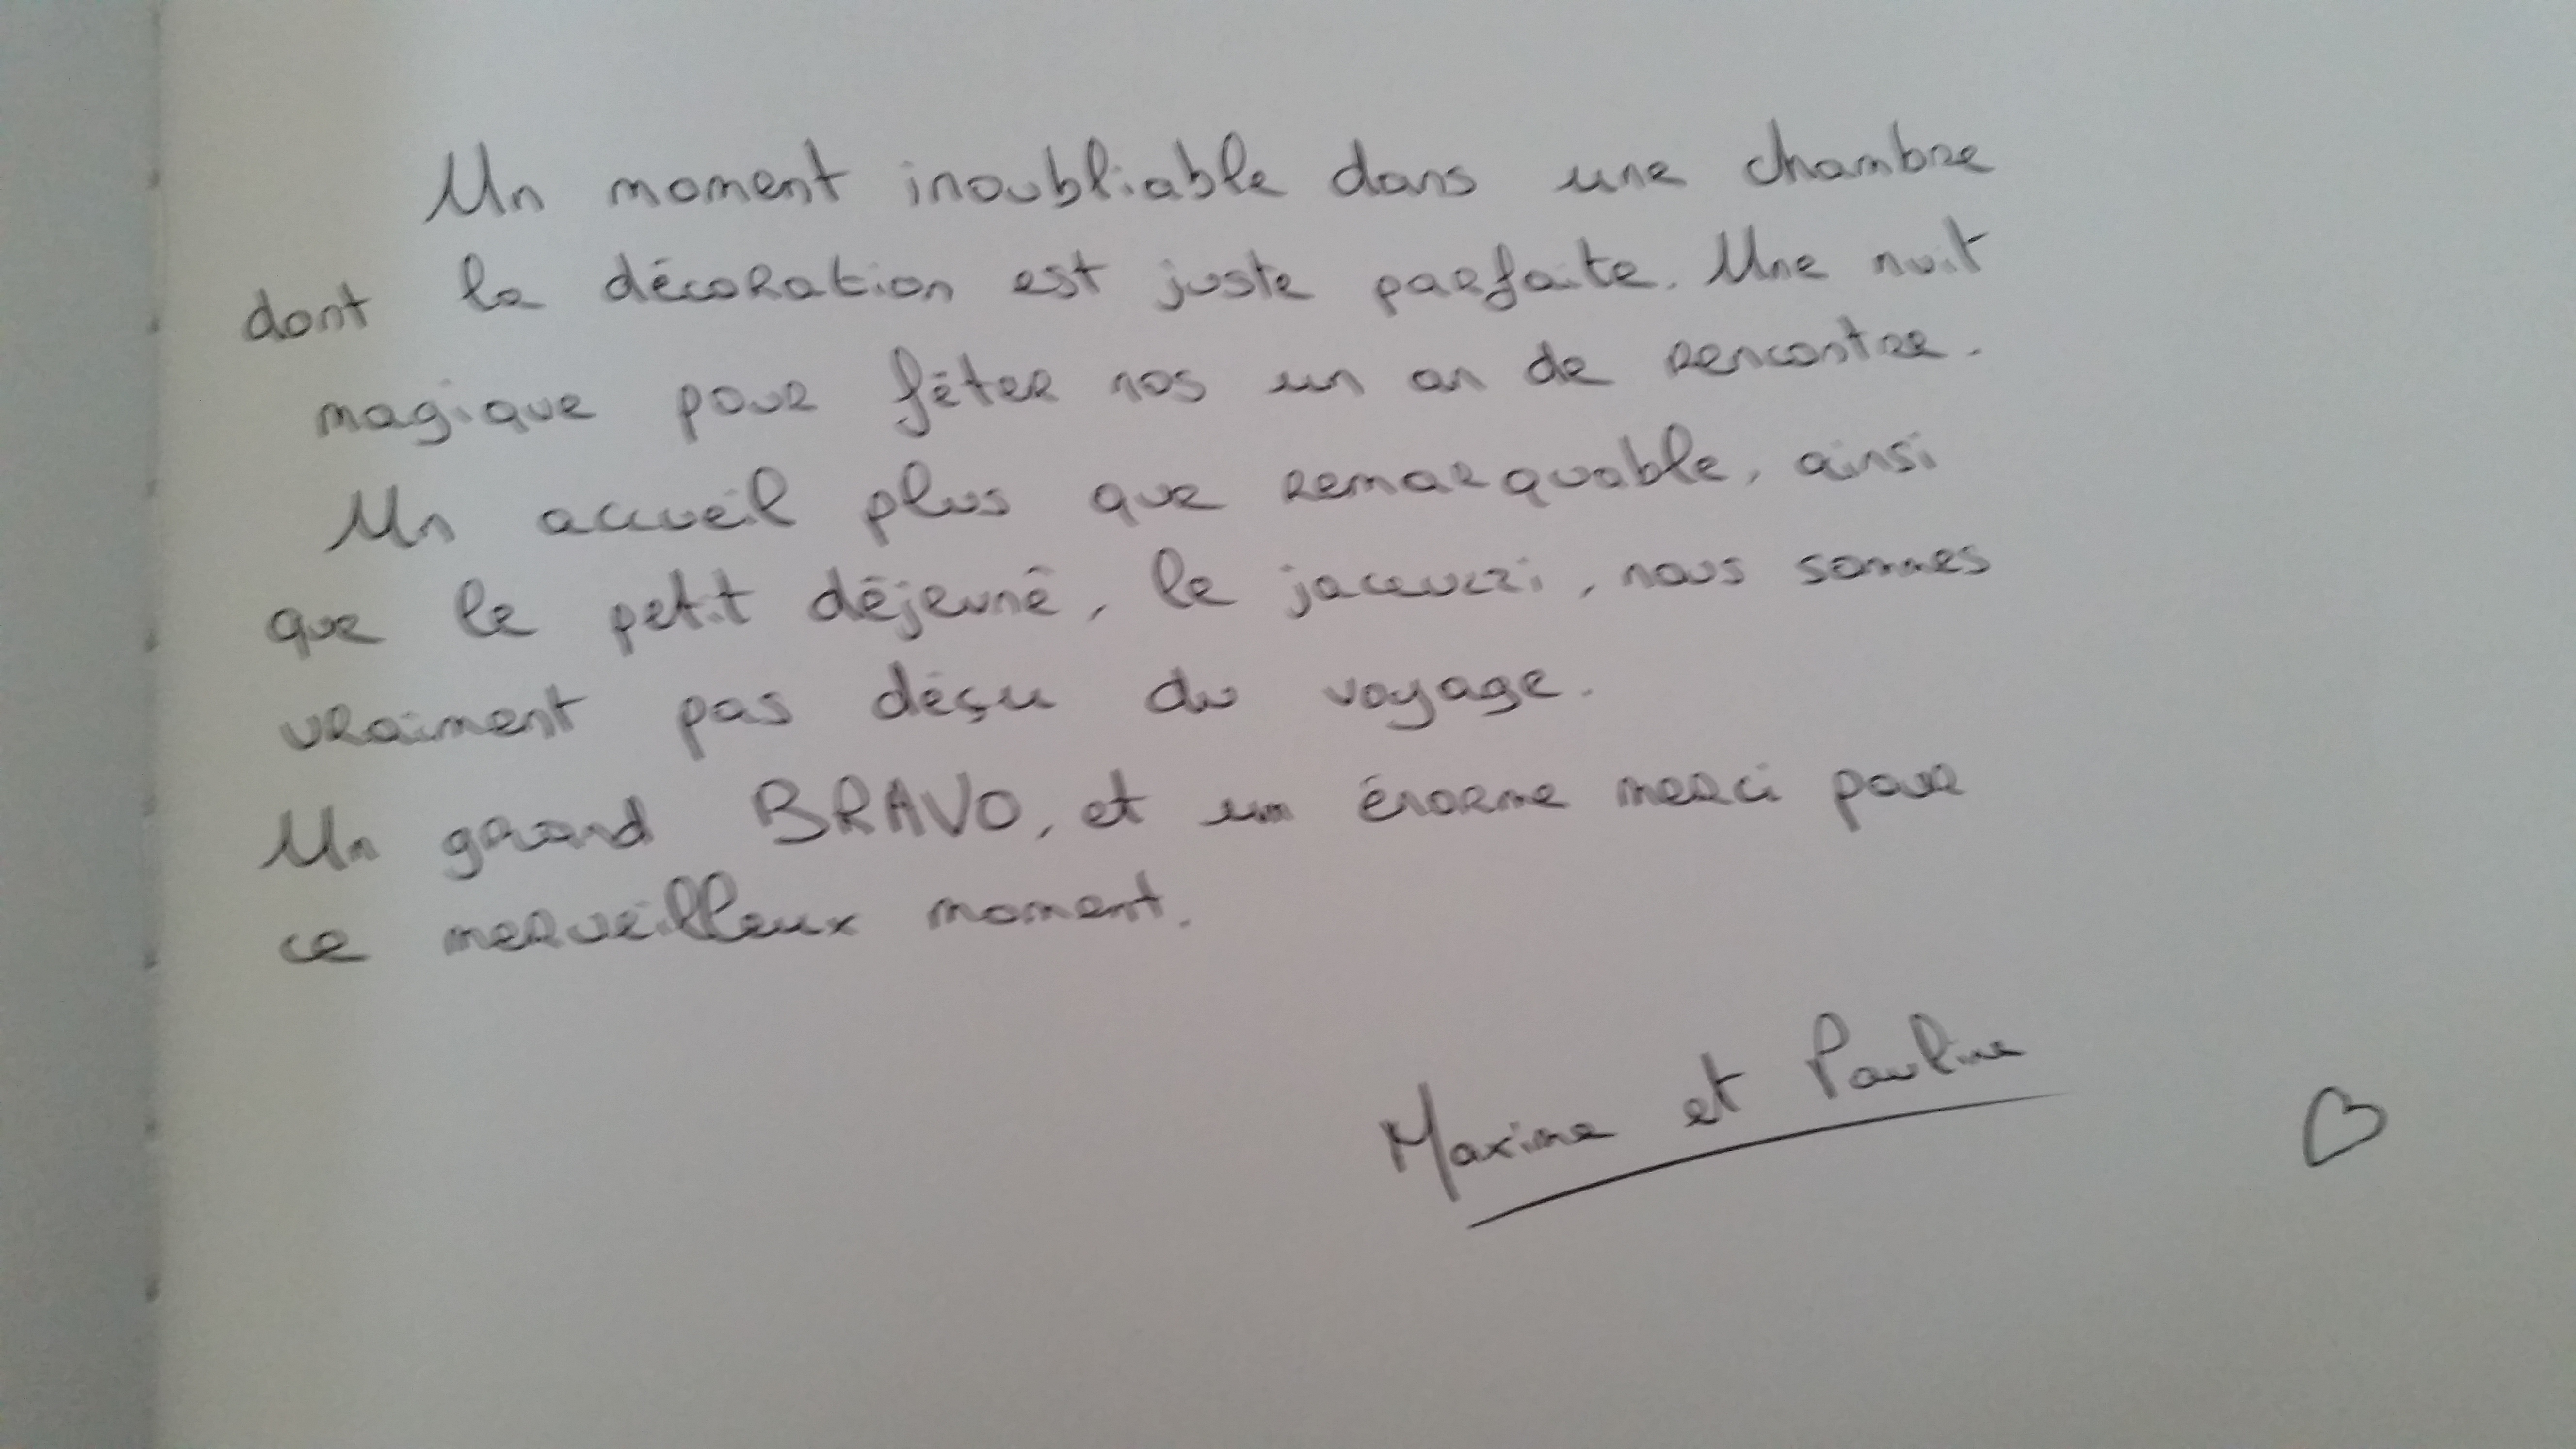 Un moment inoubliable dans une chambre
dont la décoration est juste parfaite. Une nuit
magique pour fêter nos un an de rencontre.
Un accueil plus que remarquable, ainsi
que le petit déjeuné, le jacuzzi, nous sommes
vraiment pas déçu du voyage.
Un grand BRAVO, et un énorme merci pour
ce merveilleux moment.
Maxime et Pauline